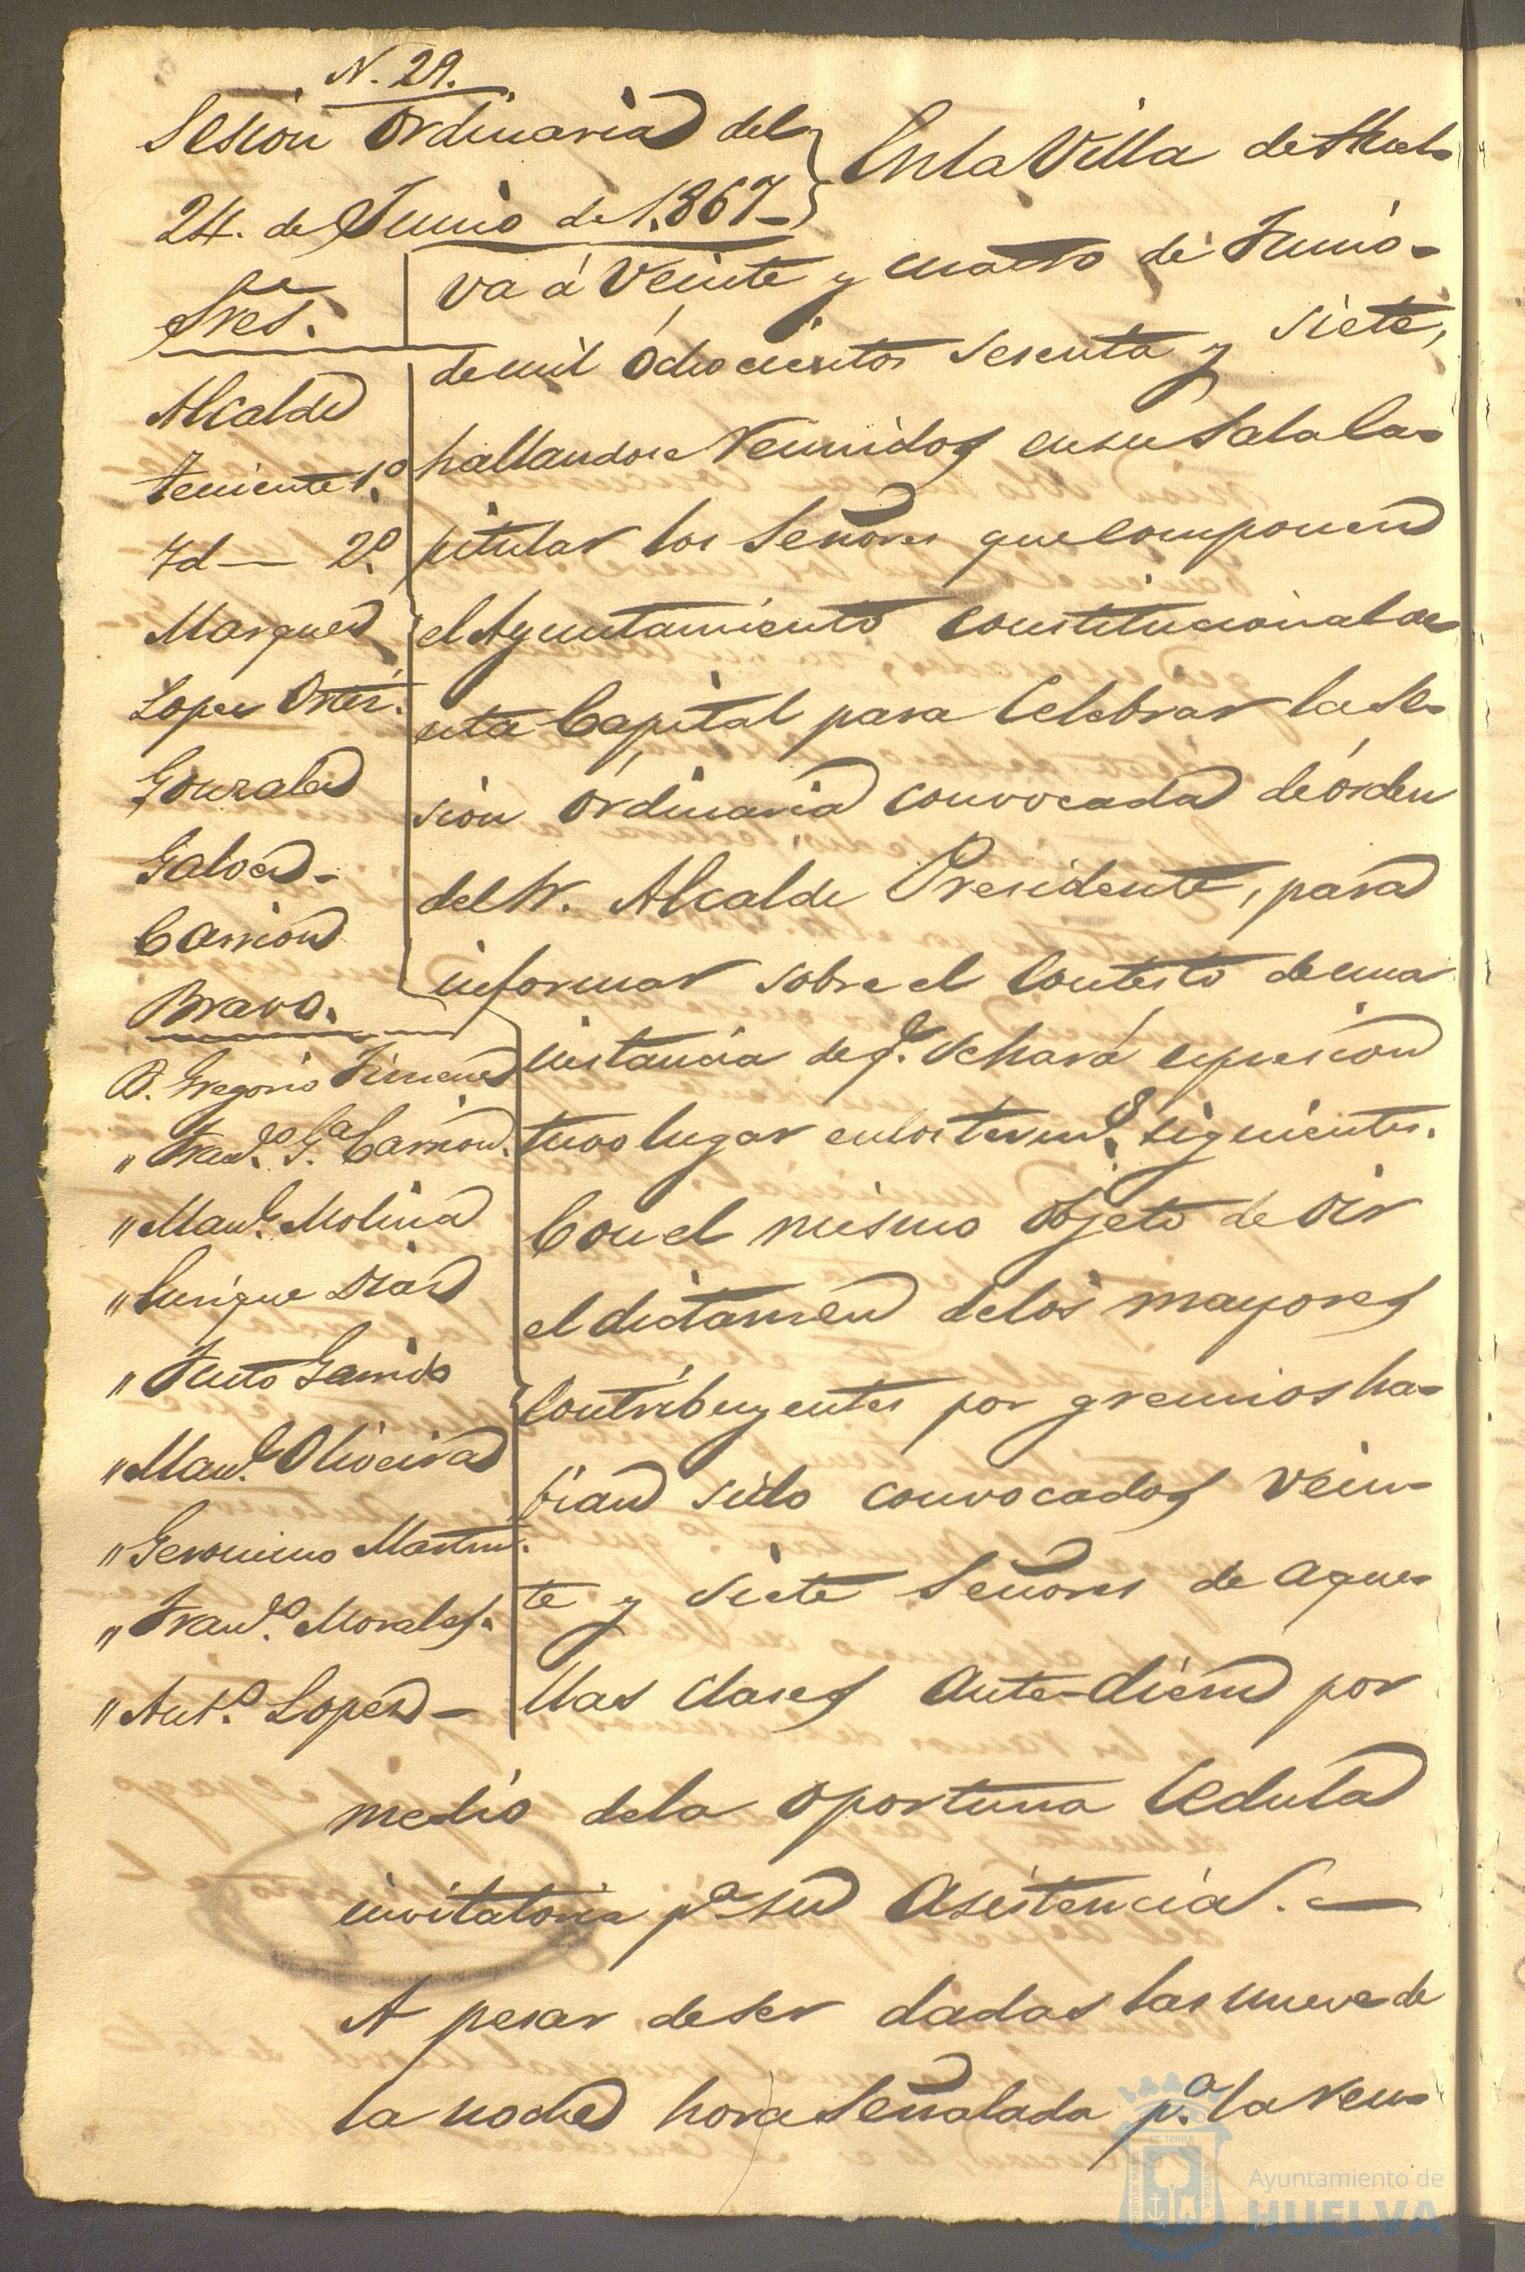 N. 29.
Sesion Ordinaria del
24. de Junio de 1.867-
Sres.
Alcalde
Teniente 1º
Id — 2º
Marquez
Lopez Ortiz.
Gonzalez
Galvez-
Carrion
Bravo.
D. Gregorio Jimenez
" Franco. Ga. Carrion.
" Manl. Molina
" Enrique Diaz
" Justo Garrido
" Manl. Oliveira
" Geronimo Martin.
" Franco. Morales.
" Anto. Lopez-
En la Villa de Huel-
va á veinte y cuatro de Junio-
de mil ochocientos sesenta y siete,
hallandose reunidos en su Sala Ca-
pitular los Señores que componen
el Ayuntamiento Constitucional de
esta Capital para celebrar la se-
sion ordinaria convocada de órden
del Sr. Alcalde Presidente, para
informar sobre el contesto de una
instancia de qe. se hará espresion
tuvo lugar en los termos. siguientes.
Con el mismo objeto de oir
el dictamen de los mayores
Contribuyentes por gremios ha-
bian sido convocados vein-
te y siete Señores de aque-
llas clases ante-diem por
medio de la oportuna Cedula
invitatoria pa. su asistencia. —
A pesar de ser dadas las nueve de
la noche hora señalada pa. la reu-
PORTUS MARIS
ET TERRÆ
CUSTODIA
Ayuntamiento de
HUELVA